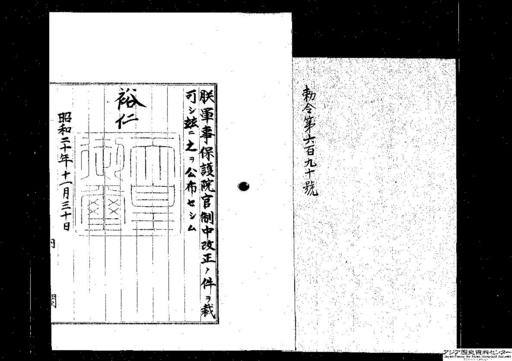 勅令第六百九十號
朕軍事保護院官制中改正ノ件ヲ裁
可シ茲ニ之ヲ公布セシム
裕仁
昭和二十年十一月三十日
内閣
アジア歴史資料センター